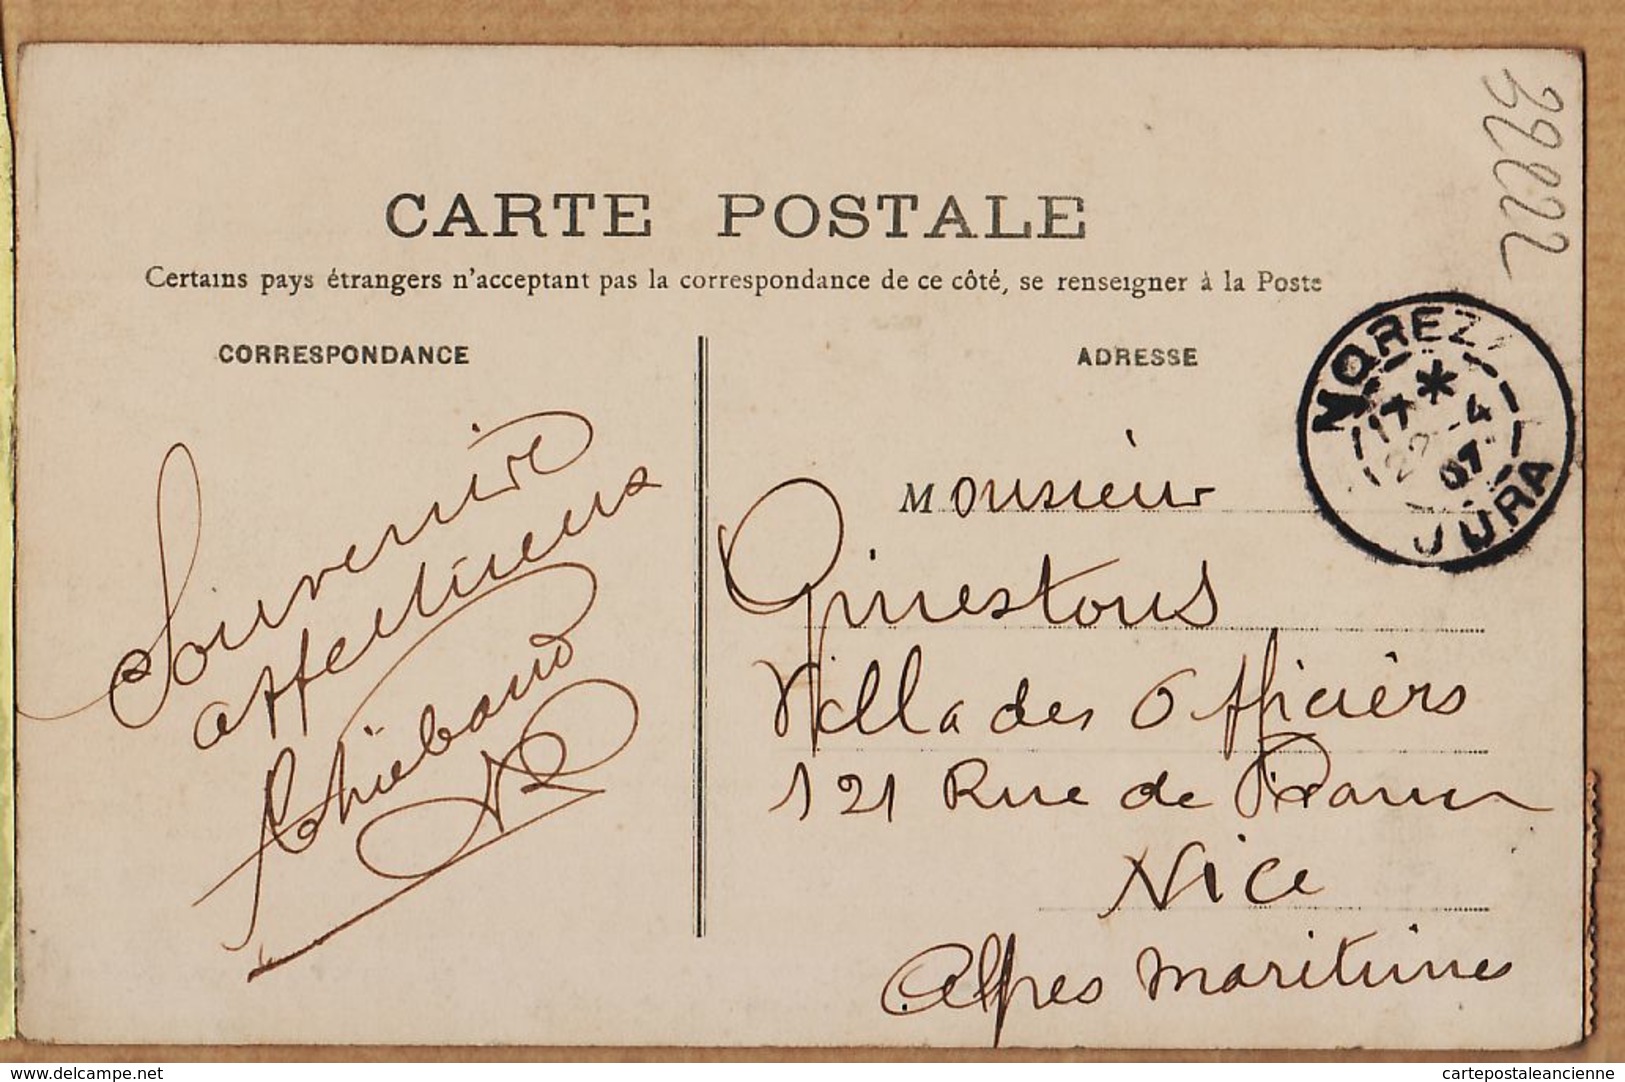 CARTE POSTALE
Certains pays étrangers n'acceptant pas la correspondance de ce côté, se renseigner à la Poste
CORRESPONDANCE
ADRESSE
MOREZ
17 * 
22 -4
07
JURA
32222
Souvenire
affectueux
Thiébaud
Monsieur
Ginestous
Villa des Officiers
121 Rue de France
Nice
Alpes maritimes
www.delcampe.net
cartepostaleancienne